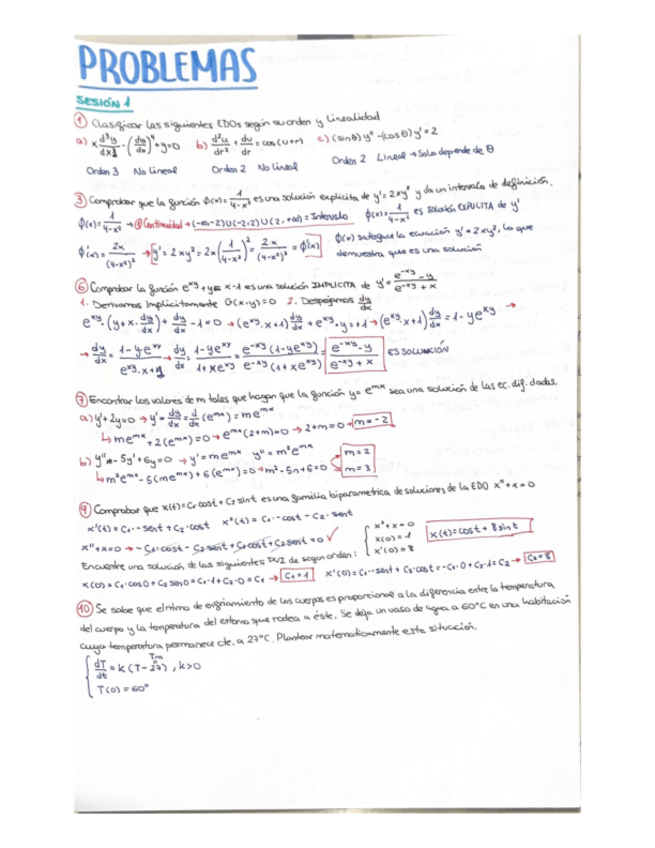 PROBLEMAS
SESIÓN 1
① Clasificar las siguientes EDOs según su orden y linealidad
a) x d³y/dx³ - (dy/dx)⁴ + y = 0 b) d²u/dr² + du/dr = cos(u+r) c) (sinθ)y'' - (cosθ)y' = 2
Orden 3 No lineal Orden 2 No lineal Orden 2 Lineal → Solo depende de θ
③ Comprobar que la función ϕ(x) = 1/4-x² es una solución explicita de y' = 2xy² y da un intervalo de definición.
ϕ(x) = 1/4-x² → Continuidad → (-∞,-2)∪(-2,2)∪(2,+∞) = Intervalo ϕ(x) = 1/4-x² es solución EXPLICITA de y'
ϕ'(x) = 2x/(4-x²)² → y' = 2xy² = 2x(1/4-x²)² = 2x/(4-x²)² = ϕ'(x) ϕ(x) satisface la ecuación y' = 2xy², lo que
demuestra que es una solución
⑥ Comprobar la función e^xy + y = x-1 es una solución IMPLICITA de y' = e^-xy - y / e^-xy + x
1. Derivamos implicitamente G(x,y) = 0 2. Despejamos dy/dx
e^xy · (y + x · dy/dx) + dy/dx - 1 = 0 → (e^xy · x + 1) dy/dx + e^xy · y = +1 → (e^xy · x + 1) dy/dx = 1 - ye^xy →
→ dy/dx = 1-ye^xy / e^xy · x + 1 → dy/dx = 1-ye^xy / 1+xe^xy = e^-xy (1-ye^xy) / e^-xy (1+xe^xy) = e^-xy - y / e^-xy + x ES SOLUCIÓN
⑦ Encontrar los valores de m tales que hagan que la función y = e^mx sea una solución de las ec. dif. dadas.
a) y' + 2y = 0 → y' = dy/dx = d/dx (e^mx) = me^mx
↳ me^mx + 2(e^mx) = 0 → e^mx (2+m) = 0 → 2+m = 0 → m = -2
b) y'' - 5y' + 6y = 0 → y' = me^mx y'' = m²e^mx m = 2
↳ m²e^mx - 5(me^mx) + 6(e^mx) = 0 → m² - 5m + 6 = 0 m = 3
⑨ Comprobar que x(t) = C₁ cost + C₂ sint es una familia biparametrica de soluciones de la EDO x'' + x = 0
x'(t) = C₁ · - sent + C₂ · cost x''(t) = C₁ · - cost - C₂ · sent
x'' + x = 0 → - C₁ · cost - C₂ · sent + C₁ cost + C₂ sent = 0 ✓ { x'' + x = 0 x(0) = 1 x'(0) = 8 x(t) = cost + 8 sint
Encuentre una solución de las siguientes PVI de segun orden:
x(0) = C₁ · cos0 + C₂ sen0 = C₁ · 1 + C₂ · 0 = C₁ → C₁ = 1 x'(0) = C₁ · - sent + C₂ · cost = - C₁ · 0 + C₂ · 1 = C₂ → C₂ = 8
⑩ Se sabe que el ritmo de enfriamiento de los cuerpos es proporcional a la diferencia entre la temperatura
del cuerpo y la temperatura del entorno que rodea a éste. Se deja un vaso de agua a 60°C en una habitación
cuya temperatura permanece cte. a 27°C. Plantear matematicamente esta situación.
Tm
{ dT/dt = k (T - 27), k > 0
T(0) = 60°